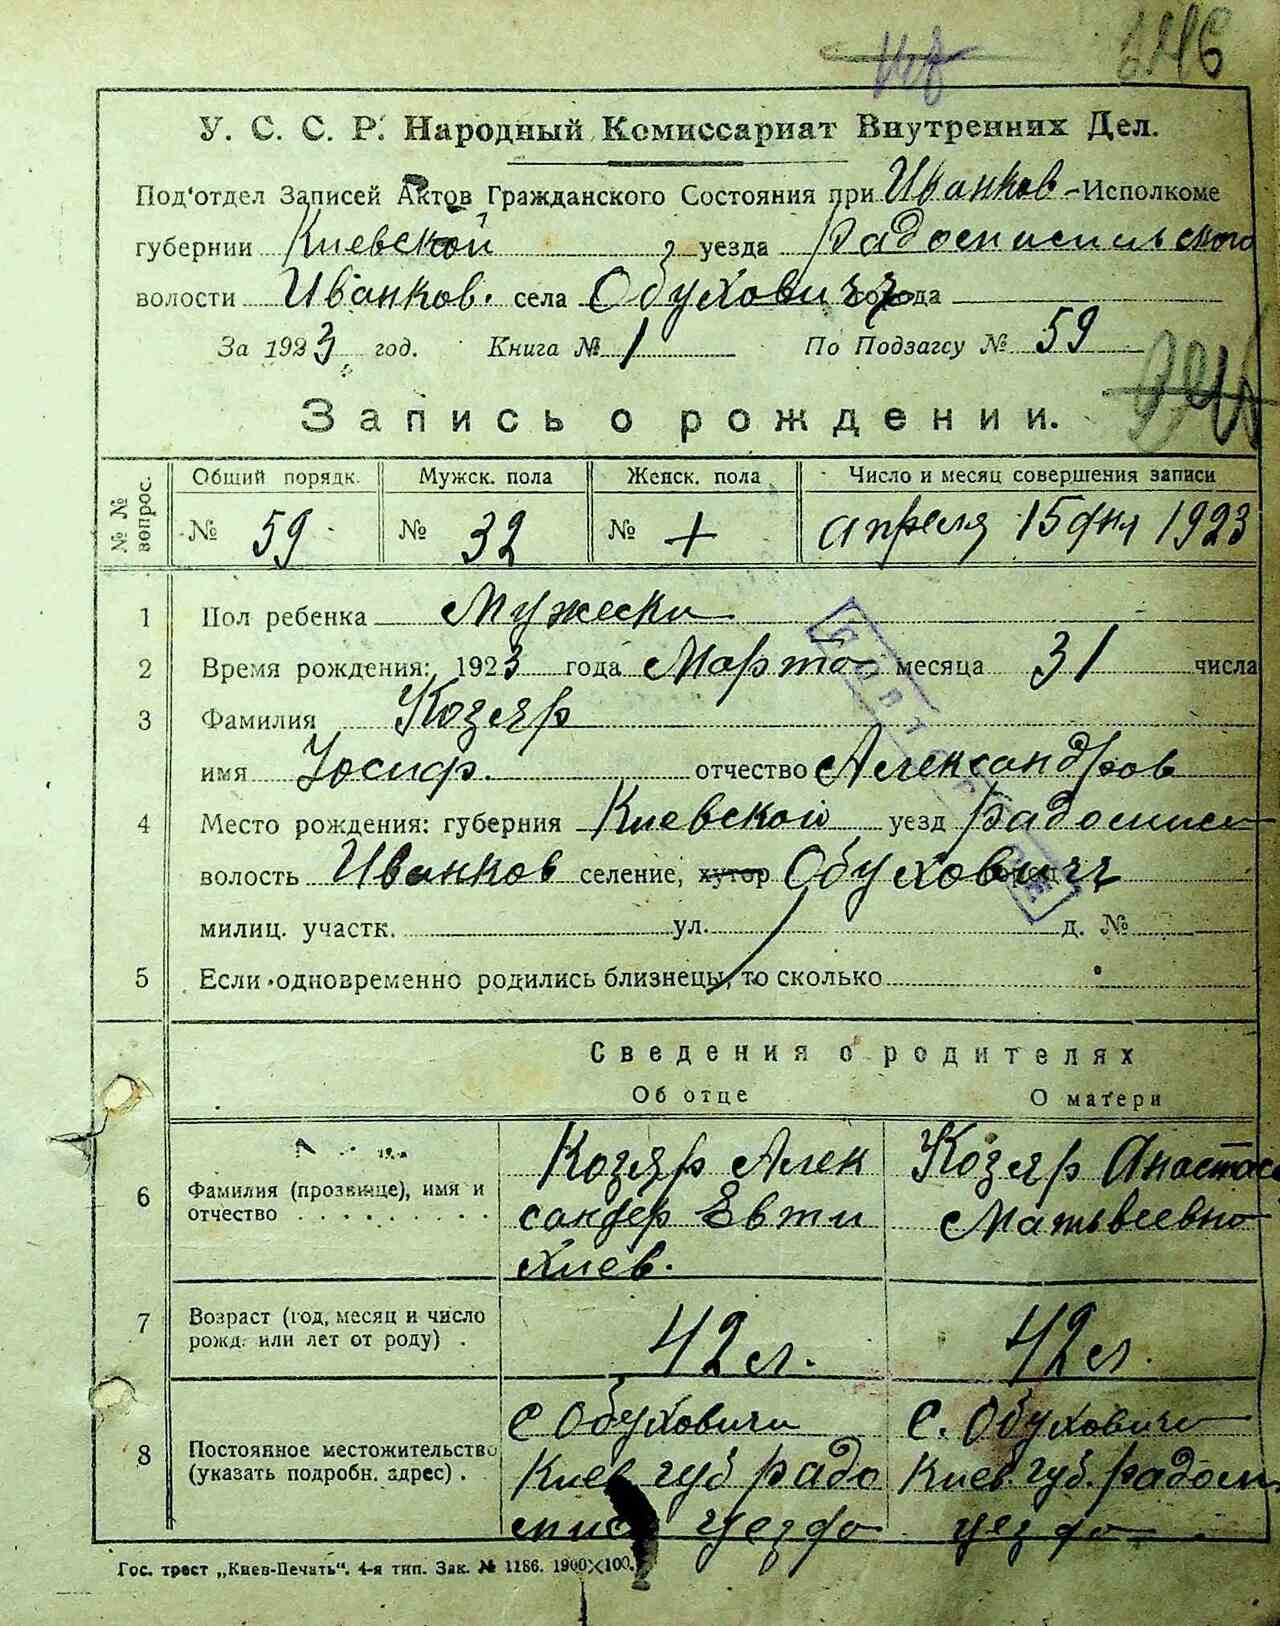 У. С. С. Р. Народный Комиссариат Внутренних Дел.
Под'отдел Записей Актов Гражданского Состояния при Иванков-Исполкоме
губернии Киевской уезда Радомисильского
волости Иванков. села Обуховичи города
За 1923 год. Книга № 1 По Подзагсу № 59
Запись о рождении.
№ № вопрос. Общий порядк. Мужск. пола Женск. пола Число и месяц совершения записи
№ 59 № 32 № + апреля 15 дня 1923
1 Пол ребенка Мужески
2 Время рождения: 1923 года Марта месяца 31 числа
3 Фамилия Козяр
имя Иосиф. отчество Александров
4 Место рождения: губерния Киевской уезд Радомисл
волость Иванков селение, хутор Обуховичи
милиц. участк. ул. д. №
5 Если одновременно родились близнецы, то сколько
Сведения о родителях
Об отце О матери
6 Фамилия (прозвище), имя и отчество
Козяр Алек
сандер Евти
хиев.
Козяр Анастас
Матьвеевна
7 Возраст (год, месяц и число рожд. или лет от роду) .
42 л. 42 л.
8 Постоянное местожительство (указать подробн. адрес) .
с Обуховичи
Киев губ Радо
мис уезда
с. Обуховичи
Киев. губ. Радом
уезда
Гос. трест „Киев-Печать“. 4-я тип. Зак. № 1186. 1900×100.